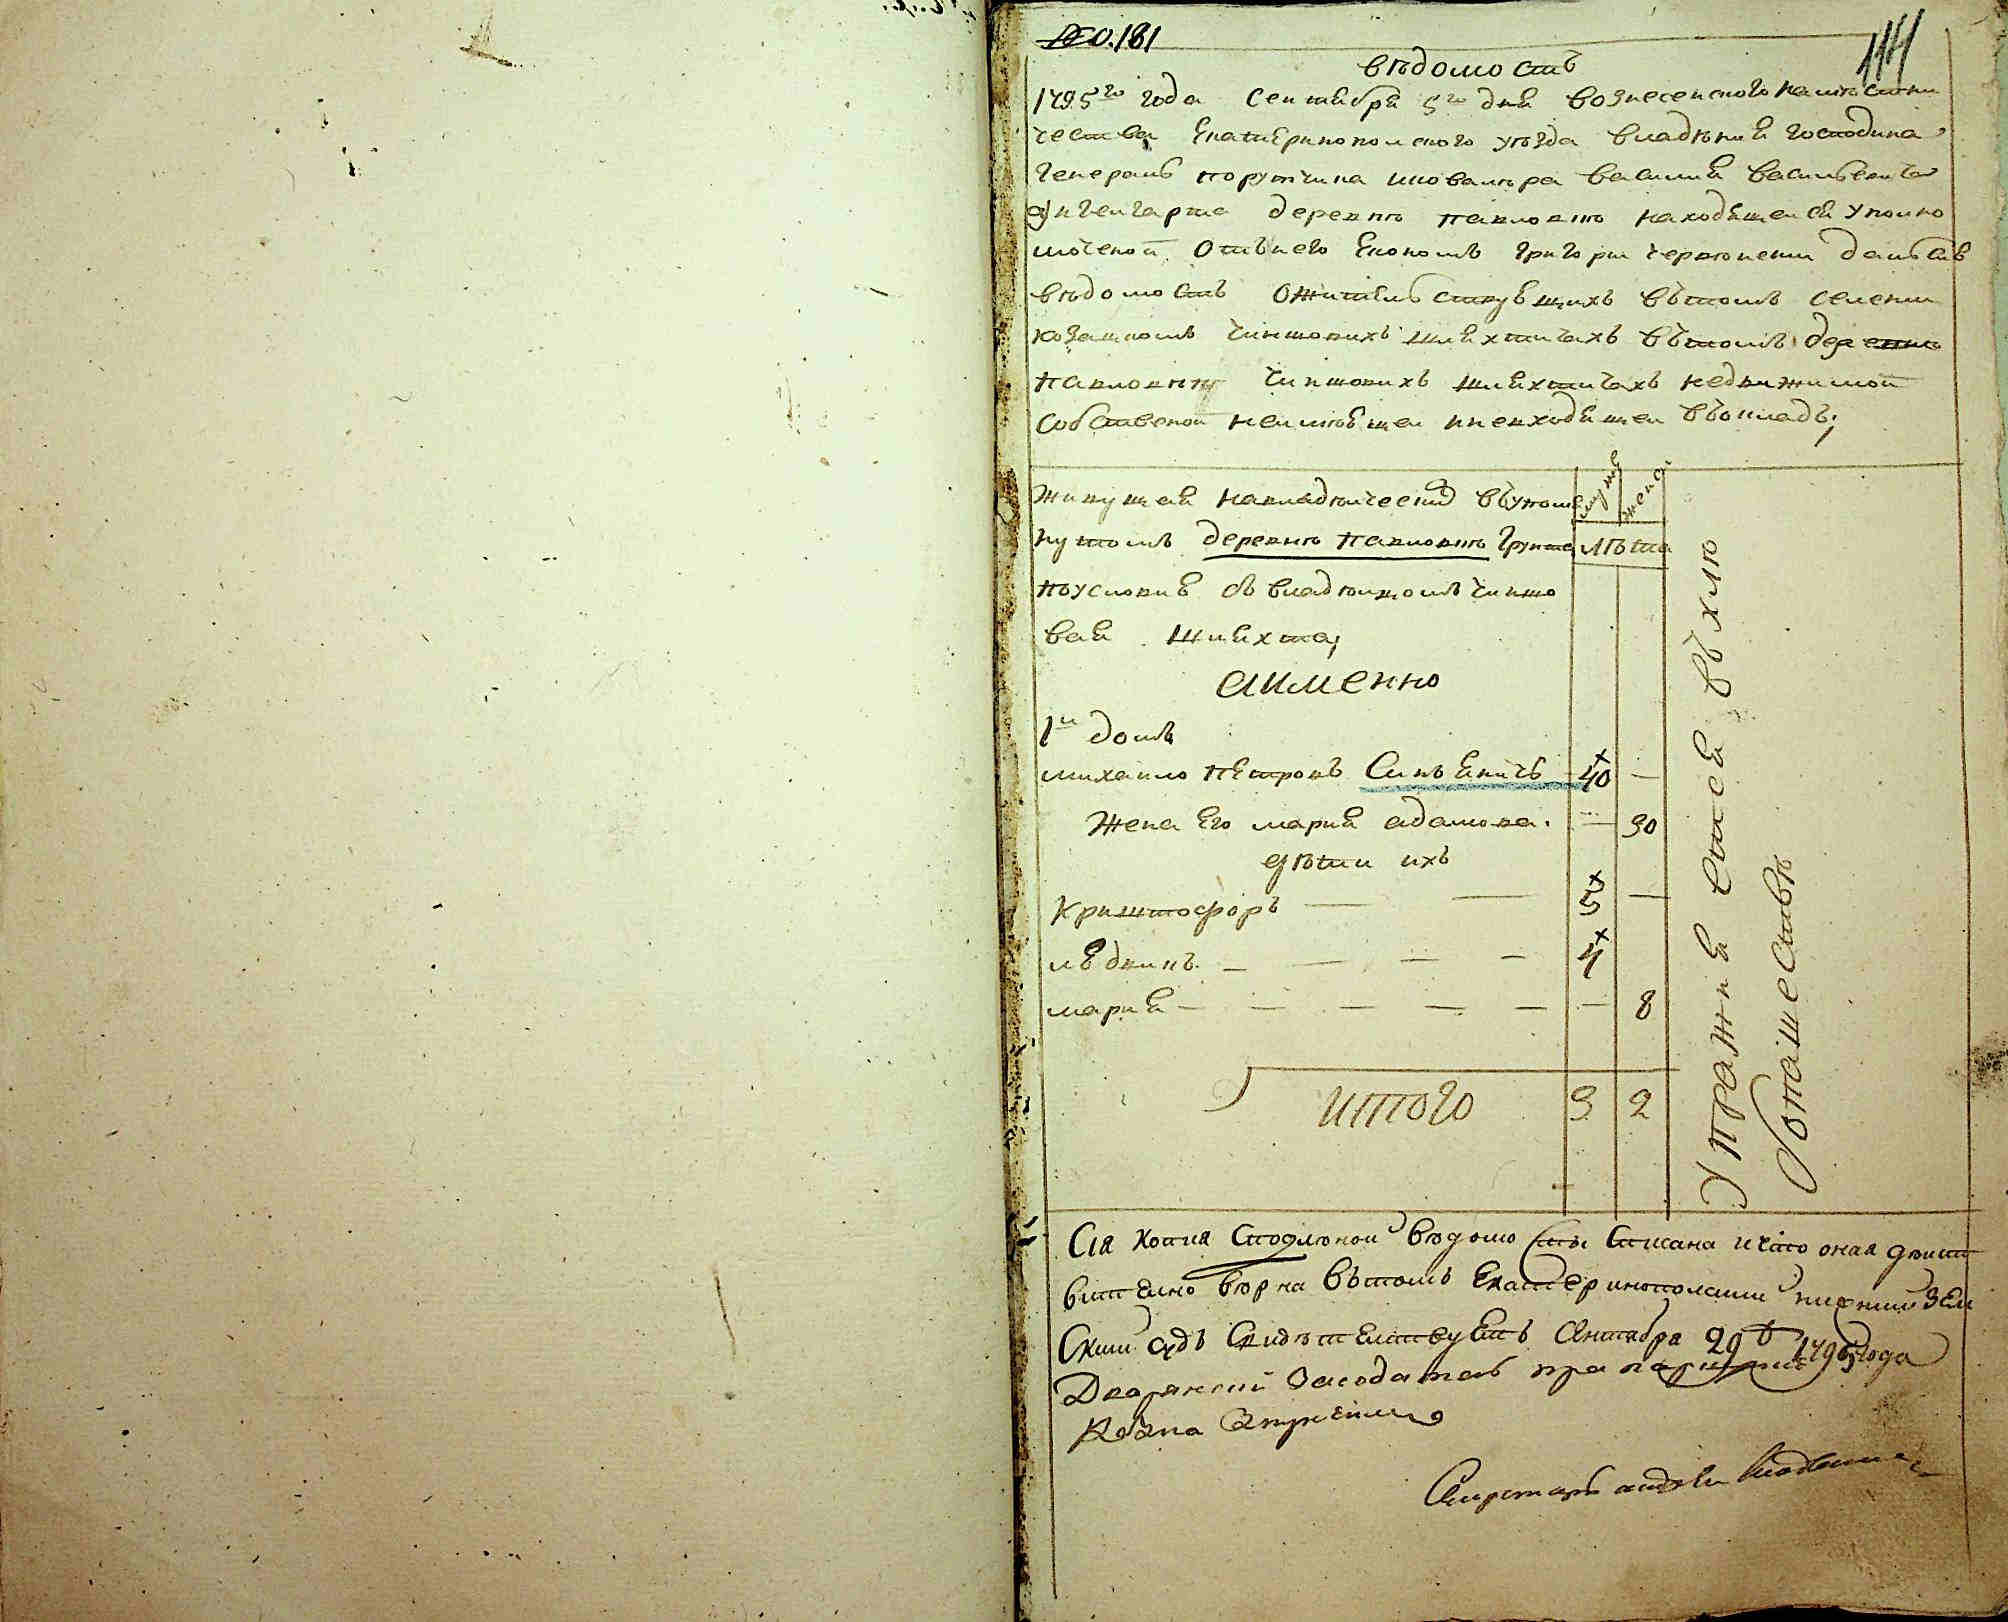 181
114
вѣдомость
1795го года сентября 5го дня вознесенского намѣстни
чества Екатеринополского уѣзда владѣния господина
генералъ порутчика иковалѣра василия васильевича
Энгелгарта деревнѣ павловкѣ находящейся уполно
моченой отънего Економъ григори дань сия
вѣдомость ожительствующихъ вътомъ селени
чиншовихъ шляхтичахъ вътомъ деревнѣ
павловки чиншовихъ шляхтичахъ недвижимой
собственой неимѣющеи иневходящеи въокладъ;
муже
женс
живущая навладѣлческой въупомя
нутомъ деревнѣ павловкѣ грунте
лѣта
поусловию съ владѣлцомъ чиншо
вая шляхта;
аименно
1й домъ
михаило петровъ 40 —
Жена Его мария адамова. — 30
дѣти ихъ
криштофоръ — — 5 —
людвикъ — — — — 4
мария — — — — — — 8
итого 3 2
Упражняется въхлѣ
бопашествѣ
Сія копия сподлѣной вѣдомости списана ичто оная дѣист
вително вѣрна вътомъ Екатеринополски нижний Зем
ский судъ свидѣтелствуетъ сентября 29 1795 года
Дворянский Заседатель прапорщикъ
Секретарь